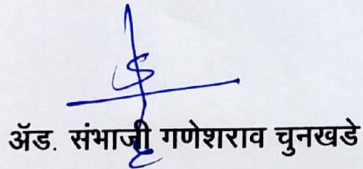 ॲड. संभाजी गणेशराव चुनखडे